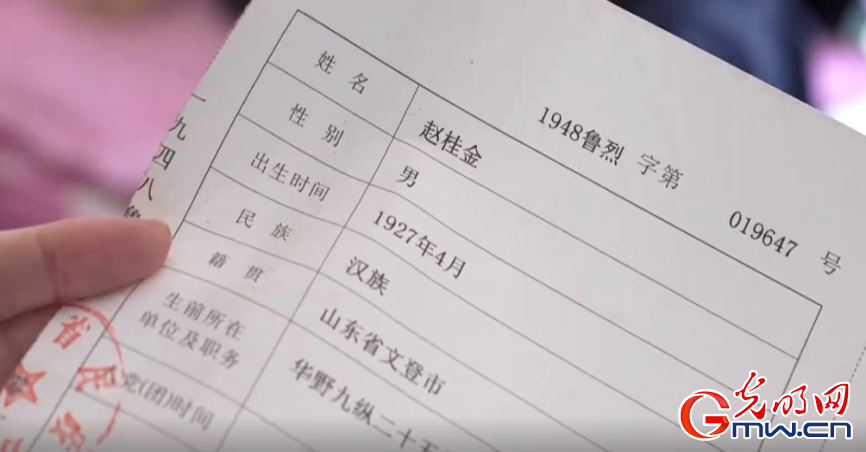 1948鲁烈 字第 019647 号
姓 名 赵桂金
性 别 男
出生时间 1927年4月
民 族 汉族
籍 贯 山东省文登市
生前所在
单位及职务 华野九纵二十五
党(团)时间
一九四八鲁
省民
光明网
Gmw.cn